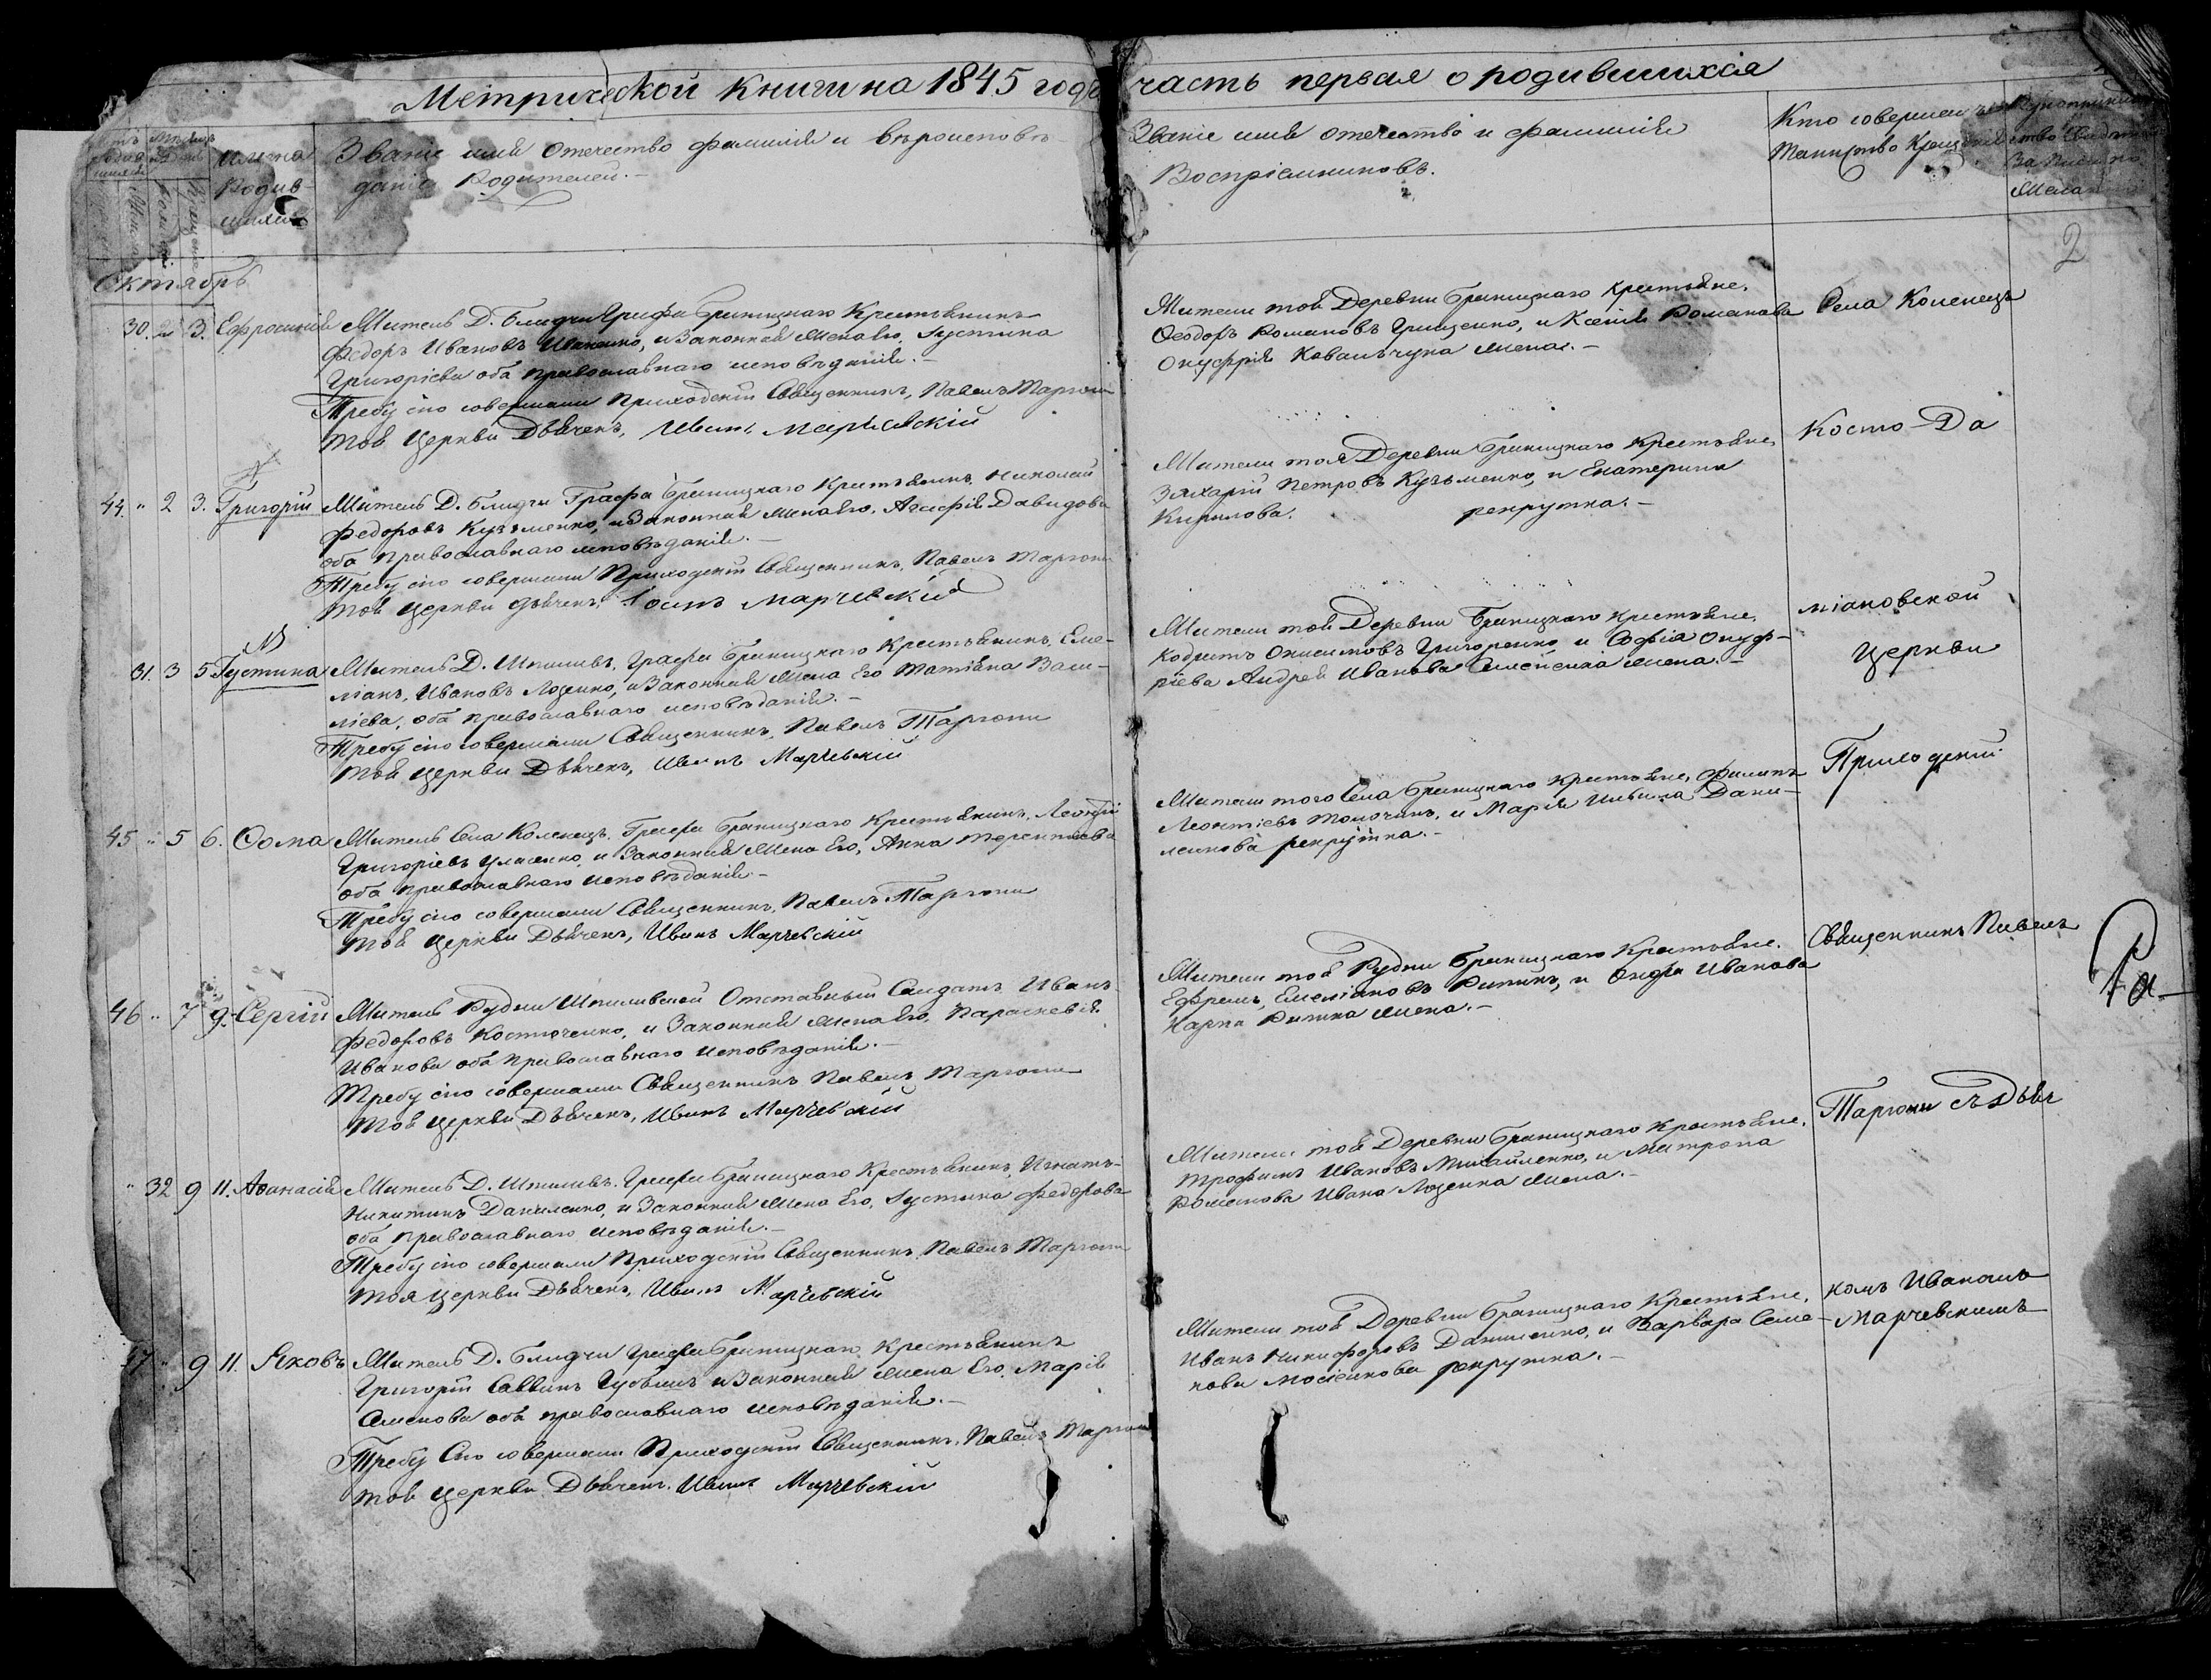 Метрической книги на 1845 годъ часть первая о родившихся
Имена
Родив-
шихся
Званіе имя Отечество фамилія и вѣроисповѣ-
даніе Родителей.-
Званіе имя отечество и фамилія
Воспріемниковъ.
Кто совершалъ
Таинство Крещенія
2
Октябрь
30. 2 3. Ефросинія Житель Д. Блидчи Графа Браницкаго Крестьянинъ
Федоръ Ивановъ и Законная Жена его, Густина
Григоріева оба православнаго исповѣданія.-
Требу сію совершали Приходскій Священникъ, Павелъ Таргони
той Церкви Дьячекъ, Иванъ Марчевскій
Жители той Деревни Браницкаго Крестьяне.
Ѳеодоръ Романовъ Грищенко, и Ксенія Романова
Онуфрія Ковальчука жена.-
Села Коленецъ
44. " 2 3. Григорій Житель Д. Блидчи Графа Браницкаго Крестьянинъ, Николай
Федоровъ Кузьменко, и Законная Жена его, Агафія Давидова
оба православнаго исповѣданія.-
Требу сію совершали Приходскій Священникъ, Павелъ Таргони
той Церкви дьячекъ, Марчевскій
Жители тоя Деревни Браницкаго Крестьяне,
Захарій Петровъ Кузьменко, и Екатерина
Кирилова. рекрутка.-
Косто-Да
31. 3 5 Густина Житель Д. Шпиливъ, Графа Браницкаго Крестьянинъ, Еме-
ліанъ, Ивановъ Лозенко, и Законная Жена Его Татіана Васи-
ліева, оба православнаго исповѣданія.-
Требу сію совершали Священникъ, Павелъ Таргони
той Церкви Дьячекъ, Иванъ Марчевскій
Жители той Деревни Браницкаго Крестьяне.
Кодратъ Онисимовъ Григоренко, и Софія Онуф-
ріева Андрея Иванова жена.-
міановской
Церкви
45 " 5 6. Ѳома Житель Села Коленецъ, Графа Браницкаго Крестьянинъ, Леонтій
Григоріевъ и Законная Жена Его, Анна Терентіева
оба православнаго исповѣданія.-
Требу сію совершали Священникъ, Павелъ Таргони
той Церкви Дьячекъ, Иванъ Марчевскій
Жители того Села Браницкаго Крестьяне, Филипъ
Леонтіевъ и Марія Дани-
ленкова рекрутка.-
Приходскій
46 " 7 9. Сергій Житель Рудни Шпиливской Отставный Солдатъ Иванъ
Федоровъ Костюченко, и Законная Жена Его, Параскевія
Иванова оба православнаго исповѣданія.-
Требу сію совершали Священникъ Павелъ Таргони
той Церкви Дьячекъ, Иванъ Марчевскій
Жители той Рудни Браницкаго Крестьяне.
Ефремъ, Емеліановъ и Иванова
Карпа жена.-
Священникъ Павелъ
" 32 9 11. Аѳанасія Житель Д. Шпиливъ. Графа Браницкаго Крестьянинъ, Игнатъ
Никитинъ Даниленко, и Законная Жена Его, Густина Федорова
оба православнаго исповѣданія.-
Требу сію совершали Приходскій Священникъ, Павелъ Таргони
тоя Церкви Дьячекъ, Иванъ Марчевскій
Жители той Деревни Браницкаго Крестьяне.
Трофимъ Ивановъ Михайленко, и Матрона
Романова Ивана Лозенка жена.-
Таргони съ Дьяч
47 " 9 11. Яковъ Житель Д. Блидчи Графа Браницкаго, Крестьянинъ
Григорій Саввинъ и Законная Жена Его, Марія
Семенова оба православнаго исповѣданія.-
Требу Сію совершали Приходскій Священникъ, Павелъ Таргони
той Церкви Дьячекъ. Иванъ Марчевскій
Жители той Деревни Браницкаго Крестьяне.
Иванъ Никифоровъ Даниленко, и Варвара Семе-
нова рекрутка.-
комъ Иваномъ
Марчевскимъ